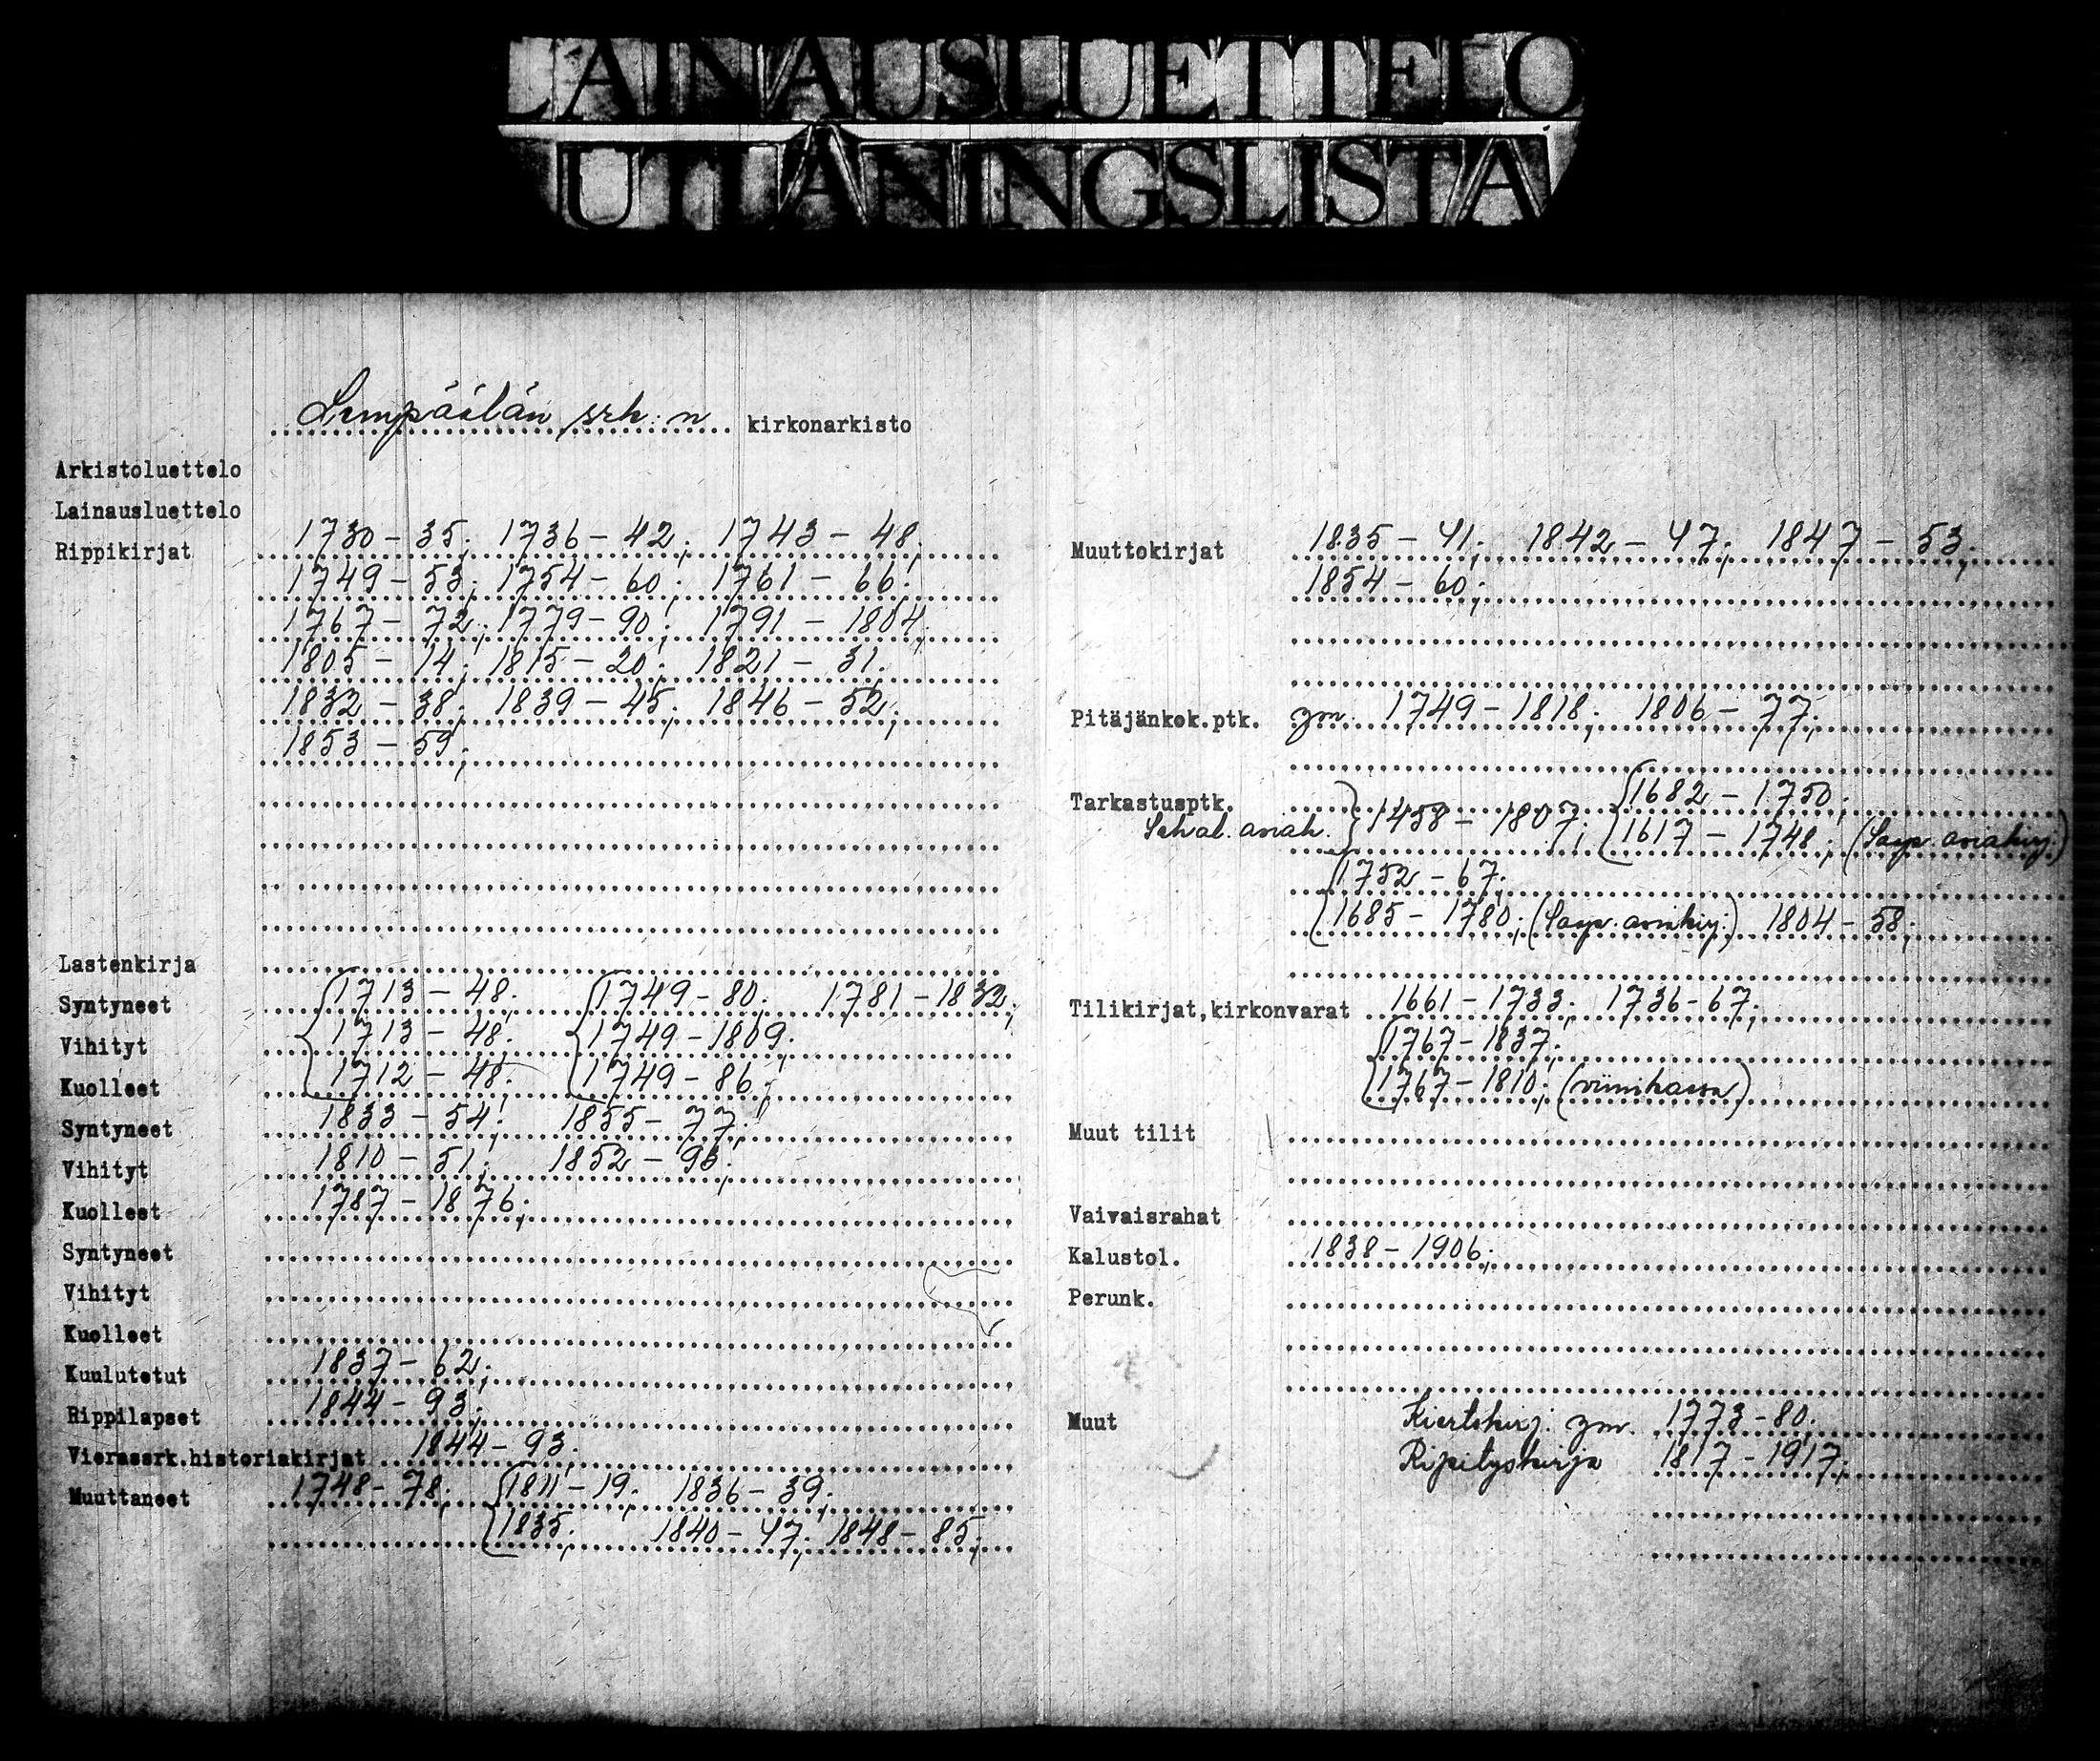 LAINAUSLUETTELO
UTLÅNINGSLISTA
Lempäälän srk:n kirkonarkisto
Arkistoluettelo
Lainausluettelo
Rippikirjat 1730-35; 1736-42; 1743-48;
1749-53; 1754-60; 1761-66;
1767-72; 1779-90; 1791-1804;
1805-14; 1815-20; 1821-31;
1832-38; 1839-45; 1846-52;
1853-59;
Lastenkirja
Syntyneet 1713-48; 1749-80; 1781-1832;
Vihityt 1713-48; 1749-1809;
Kuolleet 1712-48; 1749-86;
Syntyneet 1833-54; 1855-77;
Vihityt 1810-51; 1852-93;
Kuolleet 1787-1876;
Syntyneet
Vihityt
Kuolleet
Kuulutetut 1837-62;
Rippilapset 1844-93;
Vierassrk.historiakirjat 1844-93;
Muuttaneet 1748-78; 1811-19; 1836-39;
1835; 1840-47; 1848-85;
Muuttokirjat 1835-41; 1842-47; 1847-53;
1854-60;
Pitäjänkok.ptk. ym. 1749-1818; 1806-77;
Tarkastusptk. 1682-1750;
1458-1807; 1617-1748;
1752-67;
1685-1780; 1804-58;
Tilikirjat,kirkonvarat 1661-1733; 1736-67;
1767-1837;
1767-1810; (viinikassa)
Muut tilit
Vaivaisrahat
Kalustol. 1838-1906;
Perunk.
Muut Kiertokirj. ym. 1773-80;
Ripityskirja 1817-1917;